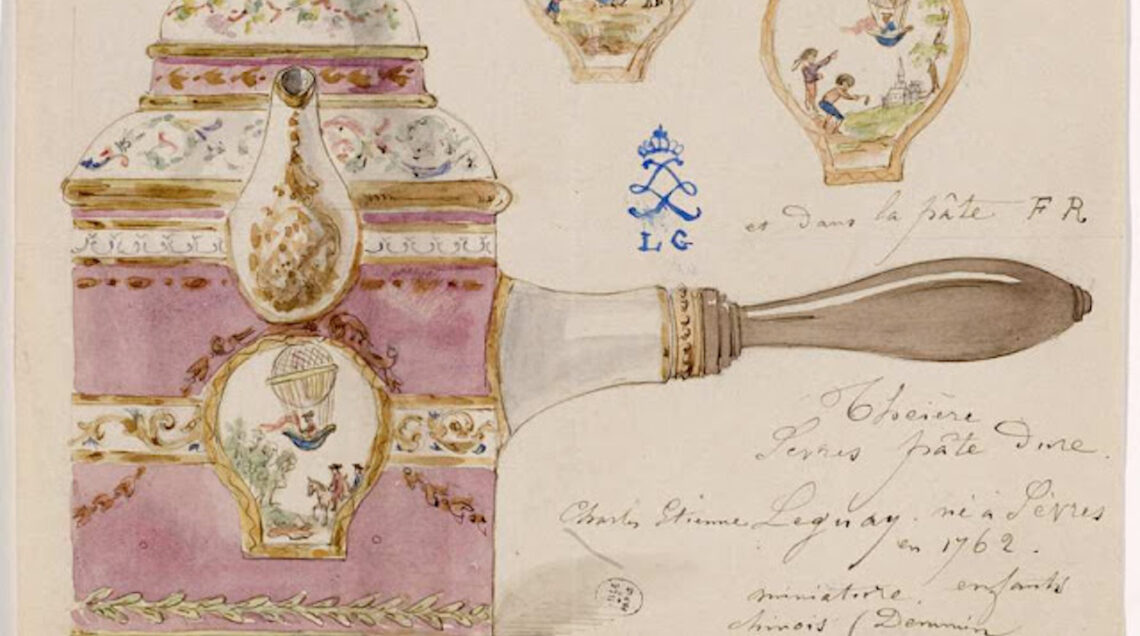 L G
et dans la pâte F R
Théière
Sevres pâte dure.
Charles Etienne Leguay. né à Sèvres
en 1762.
miniature. enfants
chinois (Demmin